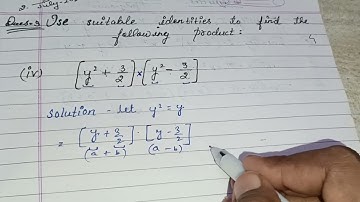 2. July-
Ques-3 Use suitable identities to find the
following product:
(iv) [y² + 3/2] × [y² - 3/2]
Solution - let y² = y
= [y + 3/2] · [y - 3/2]
(a + b) (a - b)